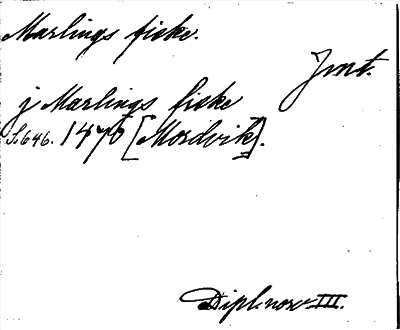 Marlings fiske.
Jmt.
j Marlings fiske
S. 646. 1476 [Mordvik].
Dipl. norv. III.